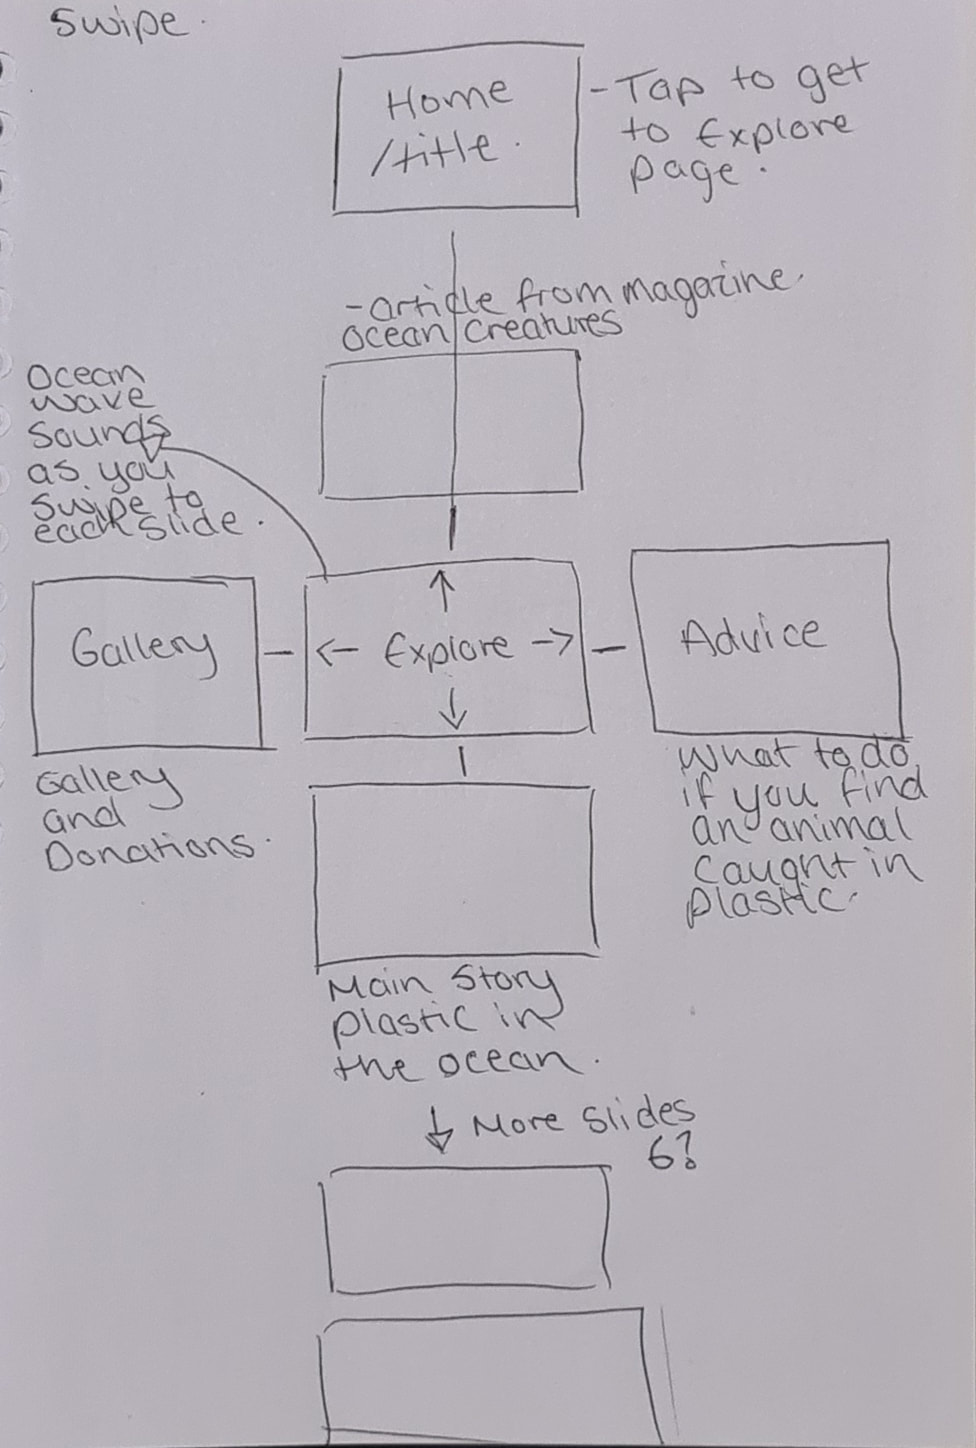 Swipe.
Home
/title.
- Tap to get
to Explore
page.
- article from magazine
ocean creatures
Ocean
wave
sounds
as you
swipe to
each slide.
Gallery
← Explore →
Advice
Gallery
and
Donations.
What to do
if you find
an animal
caught in
plastic.
Main Story
plastic in
the ocean.
↓ More slides
6?